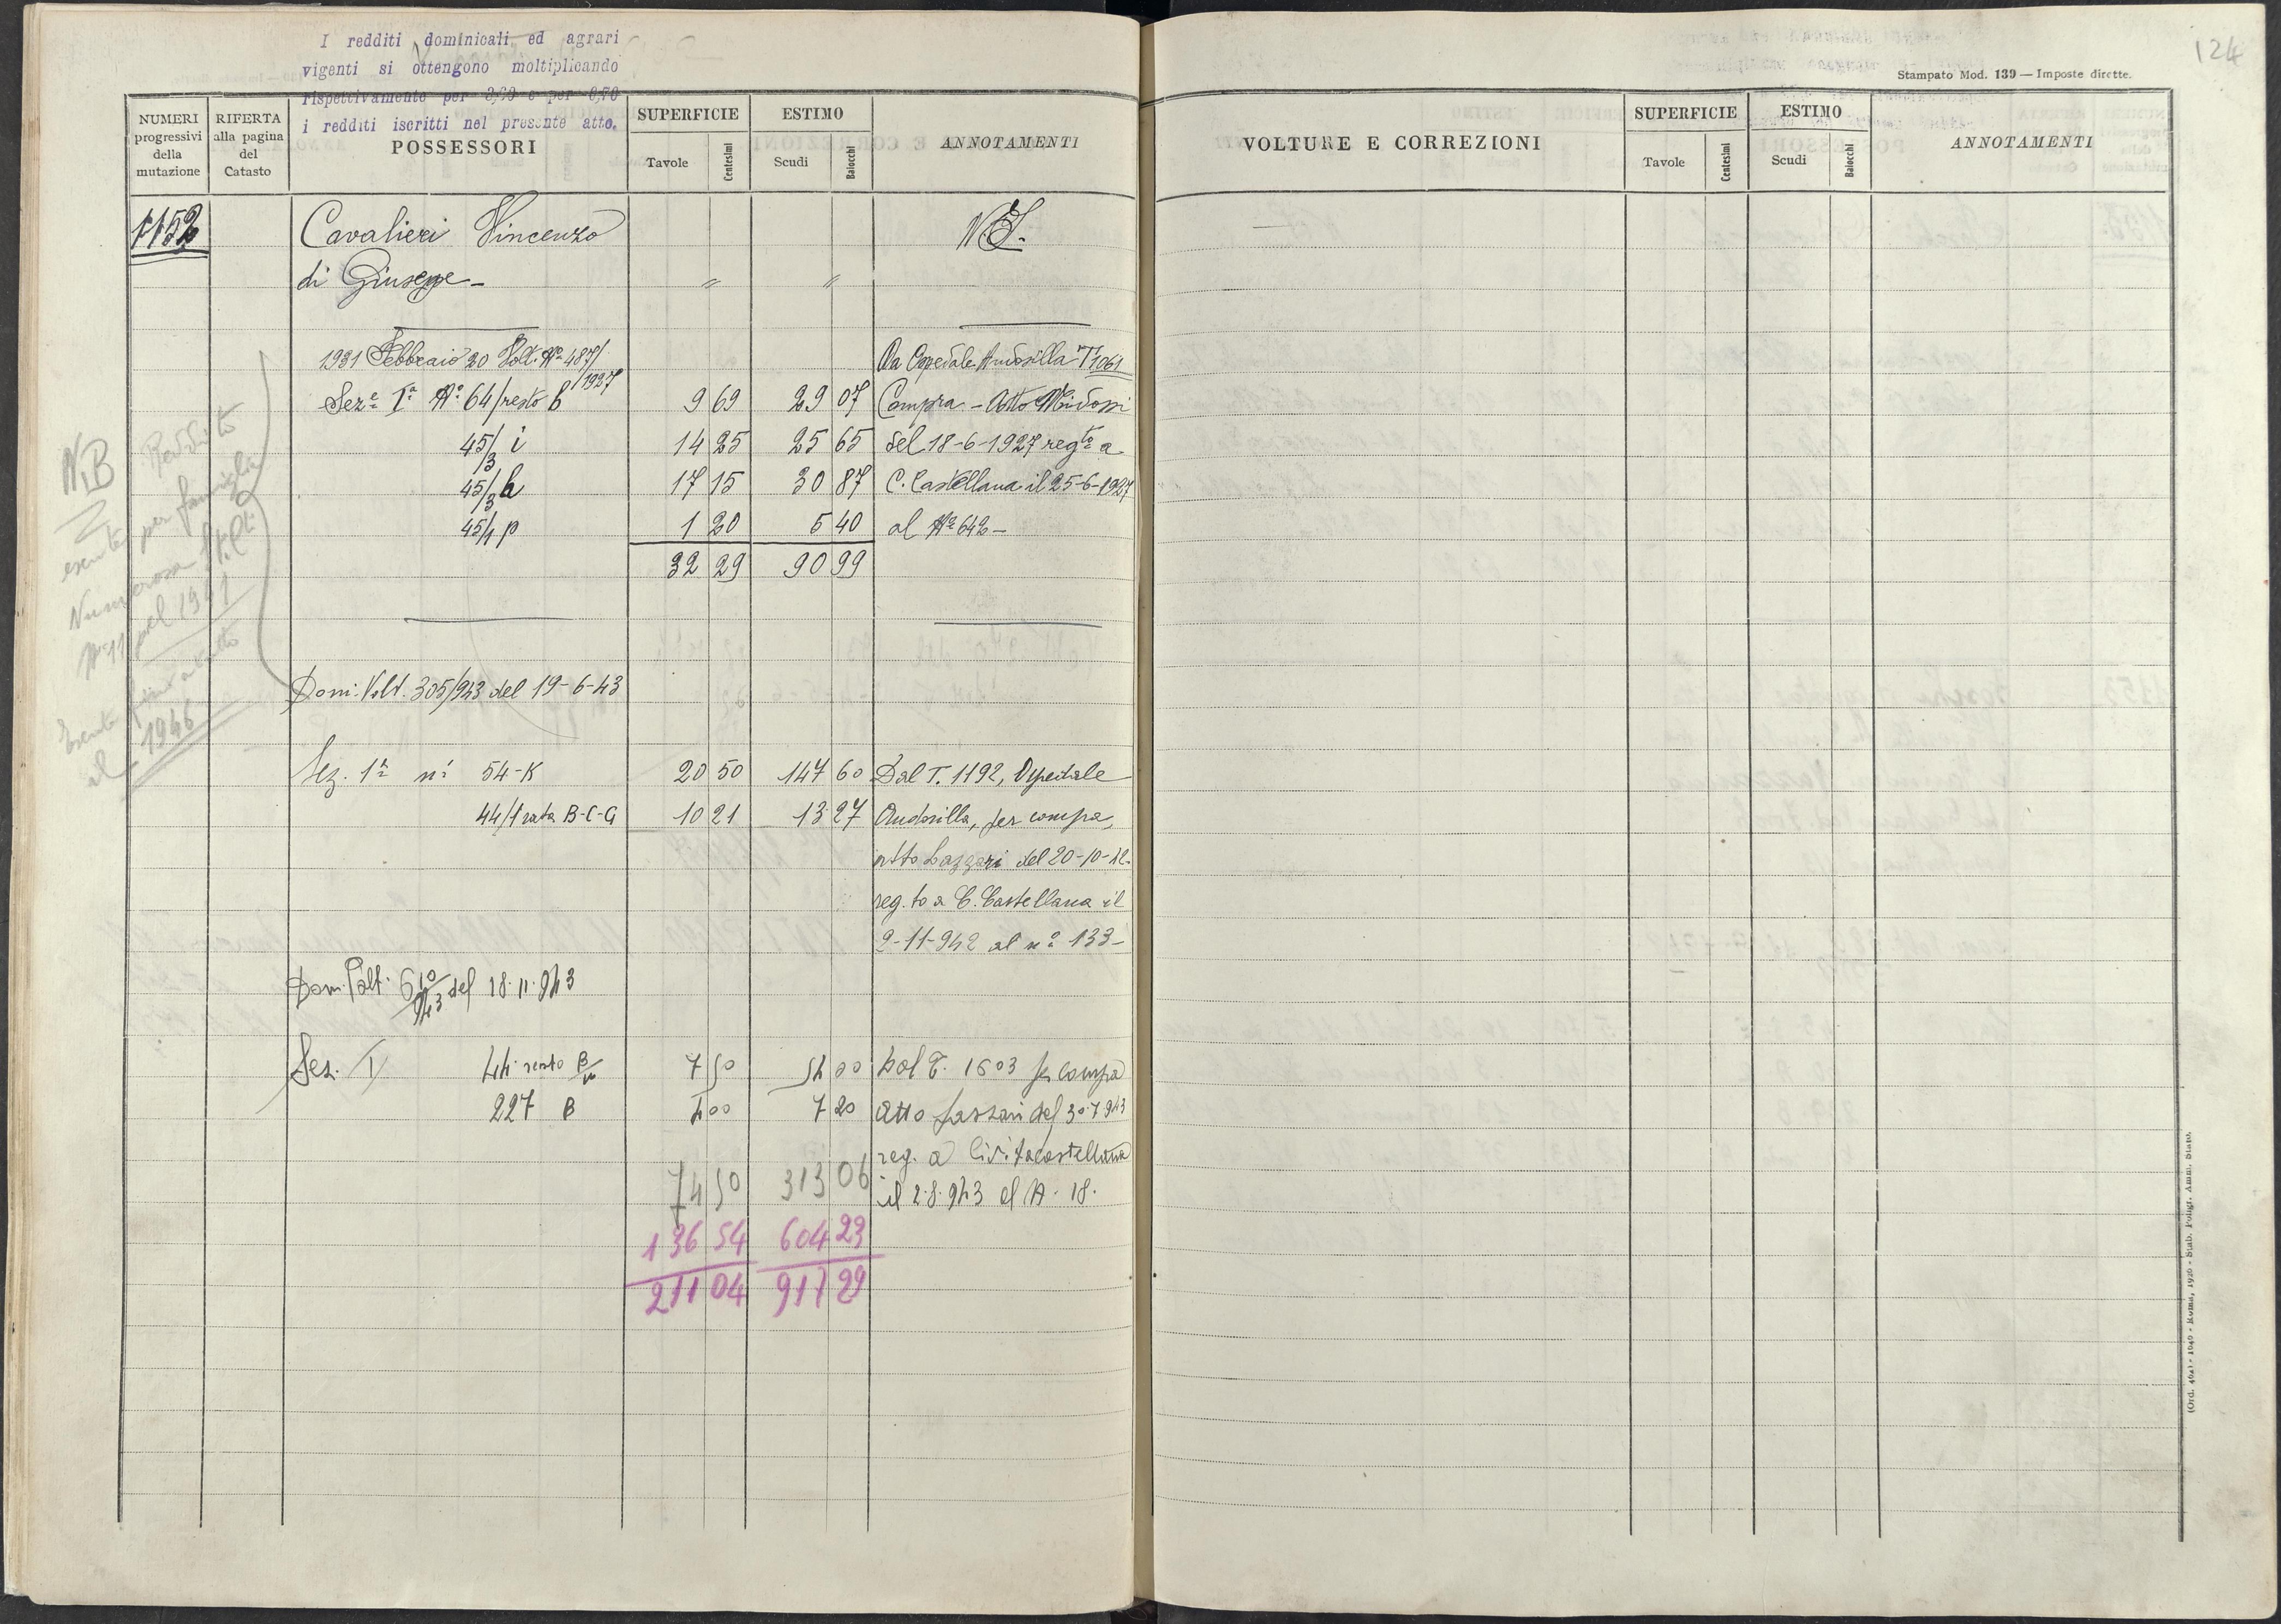 I redditi dominicali ed agrari
vigenti si ottengono moltiplicando
rispettivamente per e per
i redditi iscritti nel presente atto.
NUMERI progressivi della mutazione
RIFERTA alla pagina del Catasto
POSSESSORI
SUPERFICIE
Tavole Centesimi
ESTIMO
Scudi Baiocchi
ANNOTAMENTI
1152 Cavalieri Vincenzo
di Giuseppe — " "
1931 Febbraio 20 Volt. Nº 487/1927 Da Ospedale Andosilla T 1061
Sezᵉ Iª Nº 64/resto b 9 69 29 07 Compra - Atto Midossi
45/3 i 14 25 25 65 del 18-6-1927 regᵗᵒ a
45/3 h 17 15 30 87 C. Castellana il 25-6-1927
45/1 p 1 20 5 40 al Nº 642 —
32 29 90 99
NB
esente per famiglia
Numerosa
nº 11 pel 1941
Esente fino a tutto
il 1946
Dom. Volt. 305/943 del 19-6-43
Sez. 1ª nº 54-K 20 50 147 60 Dal T. 1192, Ospedale
44/1 rata B-C-G 10 21 13 27 Andosilla, per compra,
atto Lazzari del 20-10-42
reg.to a C. Castellana il
9-11-942 al nº 133 —
Dom. Volt. 610/943 del 18.11.943
Sez. I 44 resto B/m 7 50 54 00 Dal T. 1603 per compra
227 B 4 00 7 20 Atto Lazzari del 30.7.943
reg. a Civitacastellana
il 2.8.943 al N. 18.
74 50 313 06
136 54 604 23
211 04 917 29
124
Stampato Mod. 139 — Imposte dirette.
VOLTURE E CORREZIONI
SUPERFICIE
Tavole Centesimi
ESTIMO
Scudi Baiocchi
ANNOTAMENTI